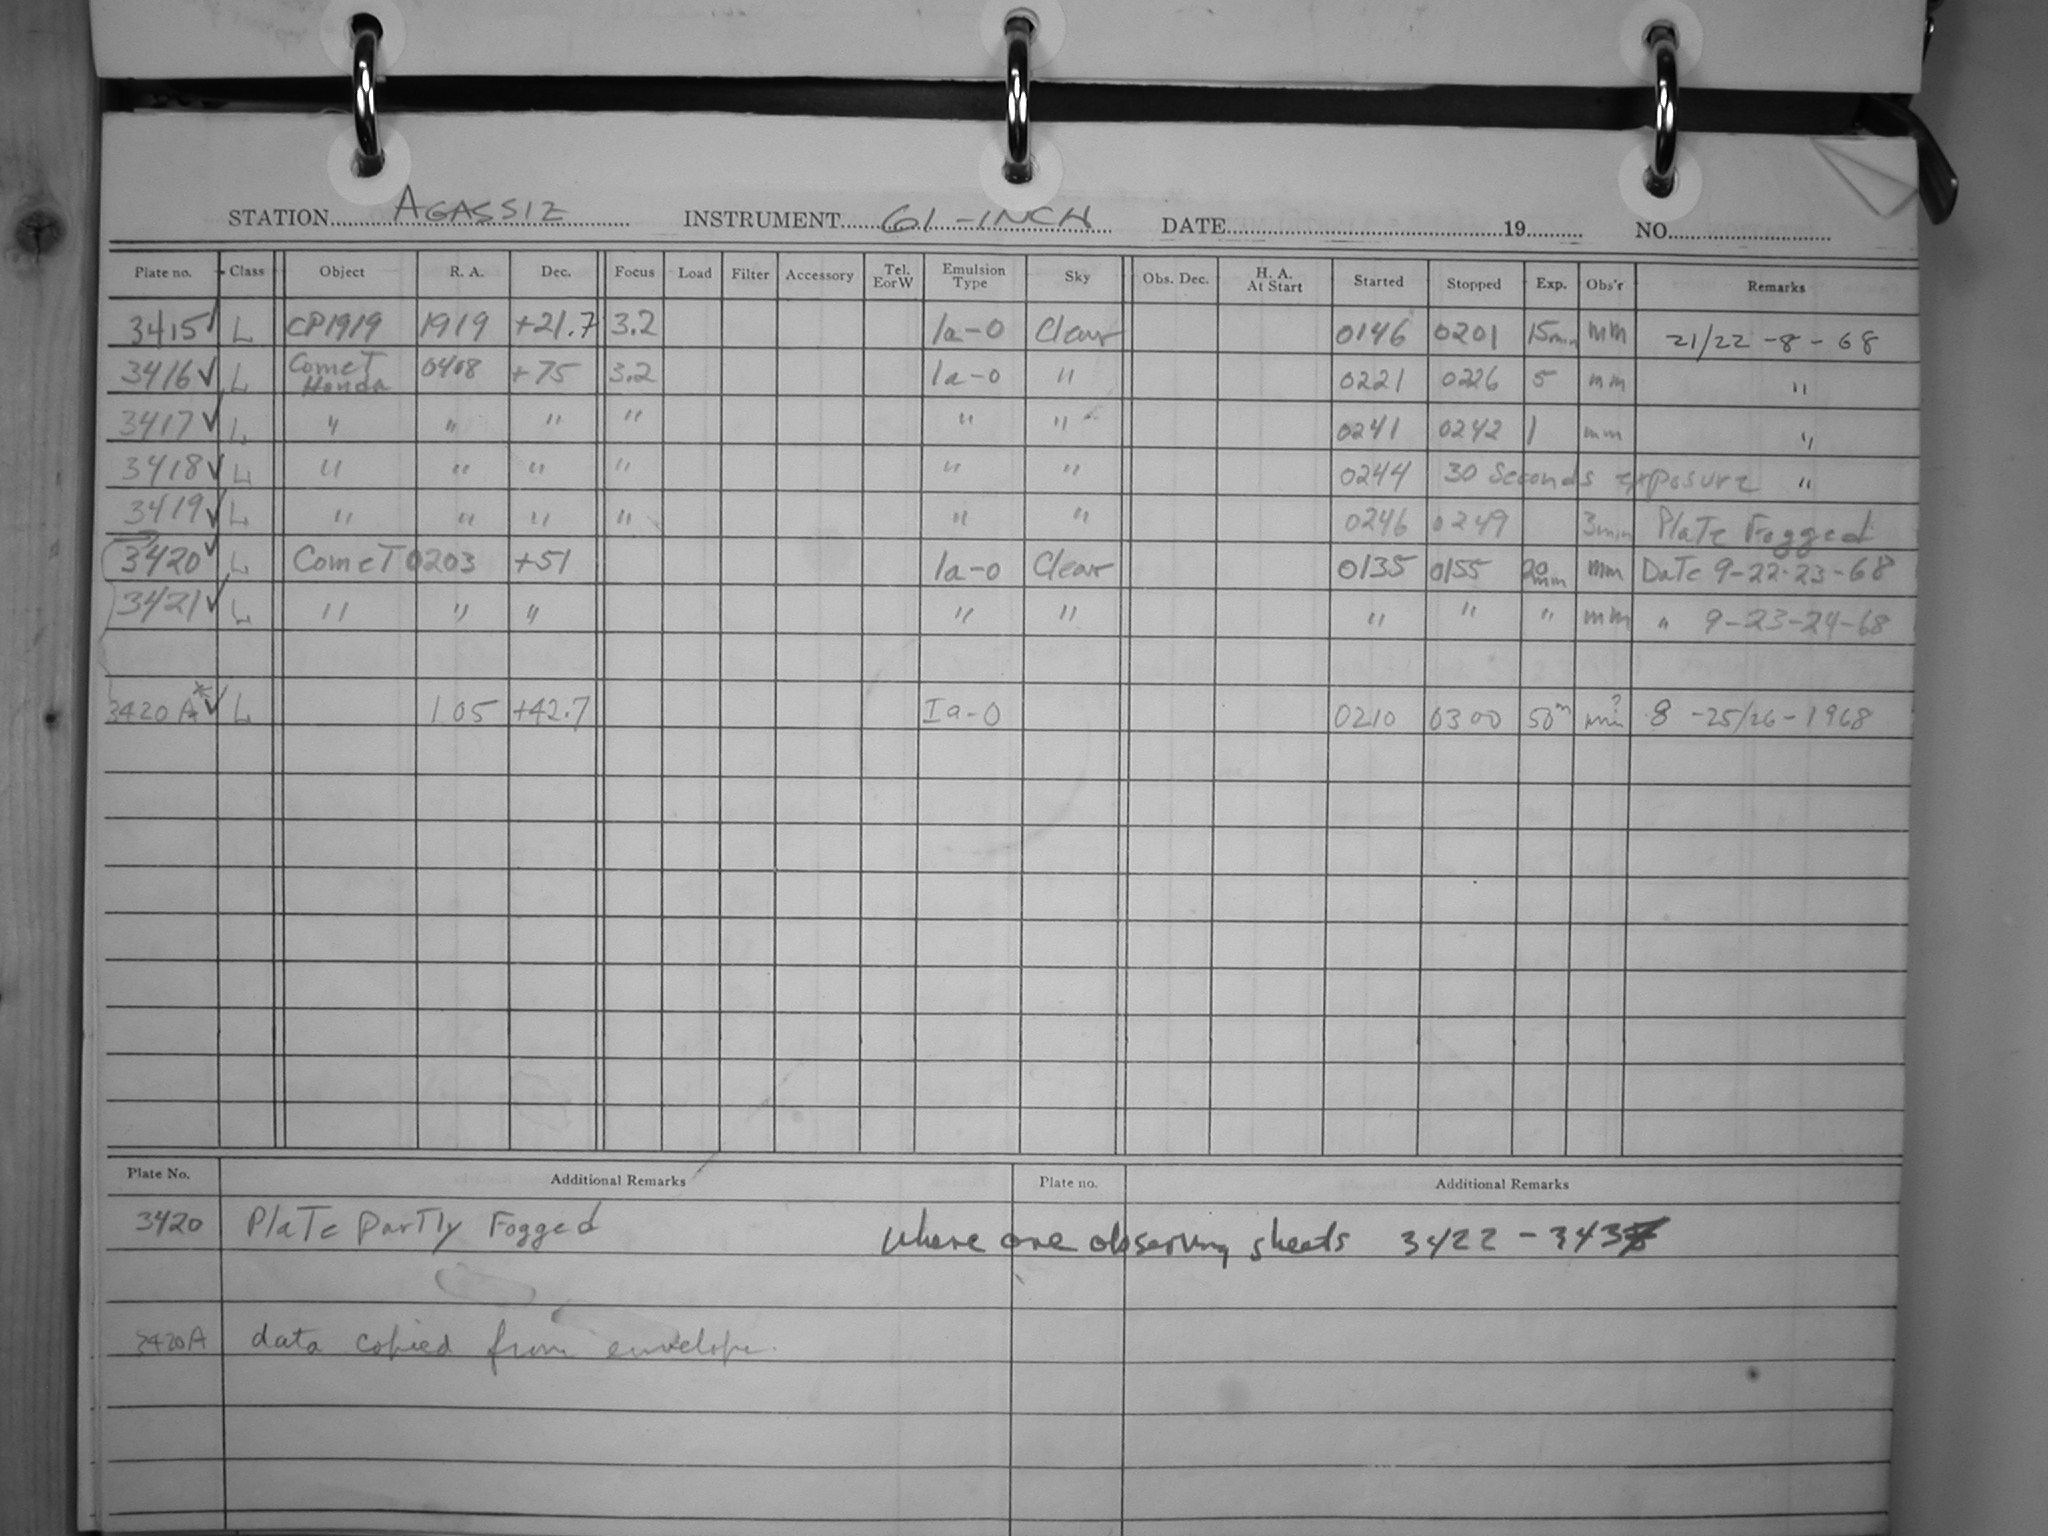 STATION AGASSIZ INSTRUMENT 61-INCH DATE 19 NO.
Plate no. Class Object R. A. Dec. Focus Load Filter Accessory Tel. E or W Emulsion Type Sky Obs. Dec. H. A. At Start Started Stopped Exp. Obs'r Remarks
3415 ✓ L CP1919 1919 +21.7 3.2 1a-0 Clear 0146 0201 15min mm 21/22-8-68
3416 ✓ L Comet Honda 0408 +75 3.2 1a-0 " 0221 0226 5 mm "
3417 ✓ L " " " " " " 0241 0242 1 mm "
3418 ✓ L " " " " " " 0244 30 Seconds exposure "
3419 ✓ L " " " " " " 0246 0249 3min Plate Fogged
3420 ✓ L Comet 0203 +51 1a-0 Clear 0135 0155 20min mm Date 9-22-23-68
3421 ✓ L " " " " " " " " mm " 9-23-24-68
3420A* ✓ L 1 05 +42.7 Ia-0 0210 0300 50m ? 8-25/26-1968
Plate No. Additional Remarks Plate no. Additional Remarks
3420 Plate Partly Fogged where are observing sheets 3422 - 343
3420A data copied from envelope.